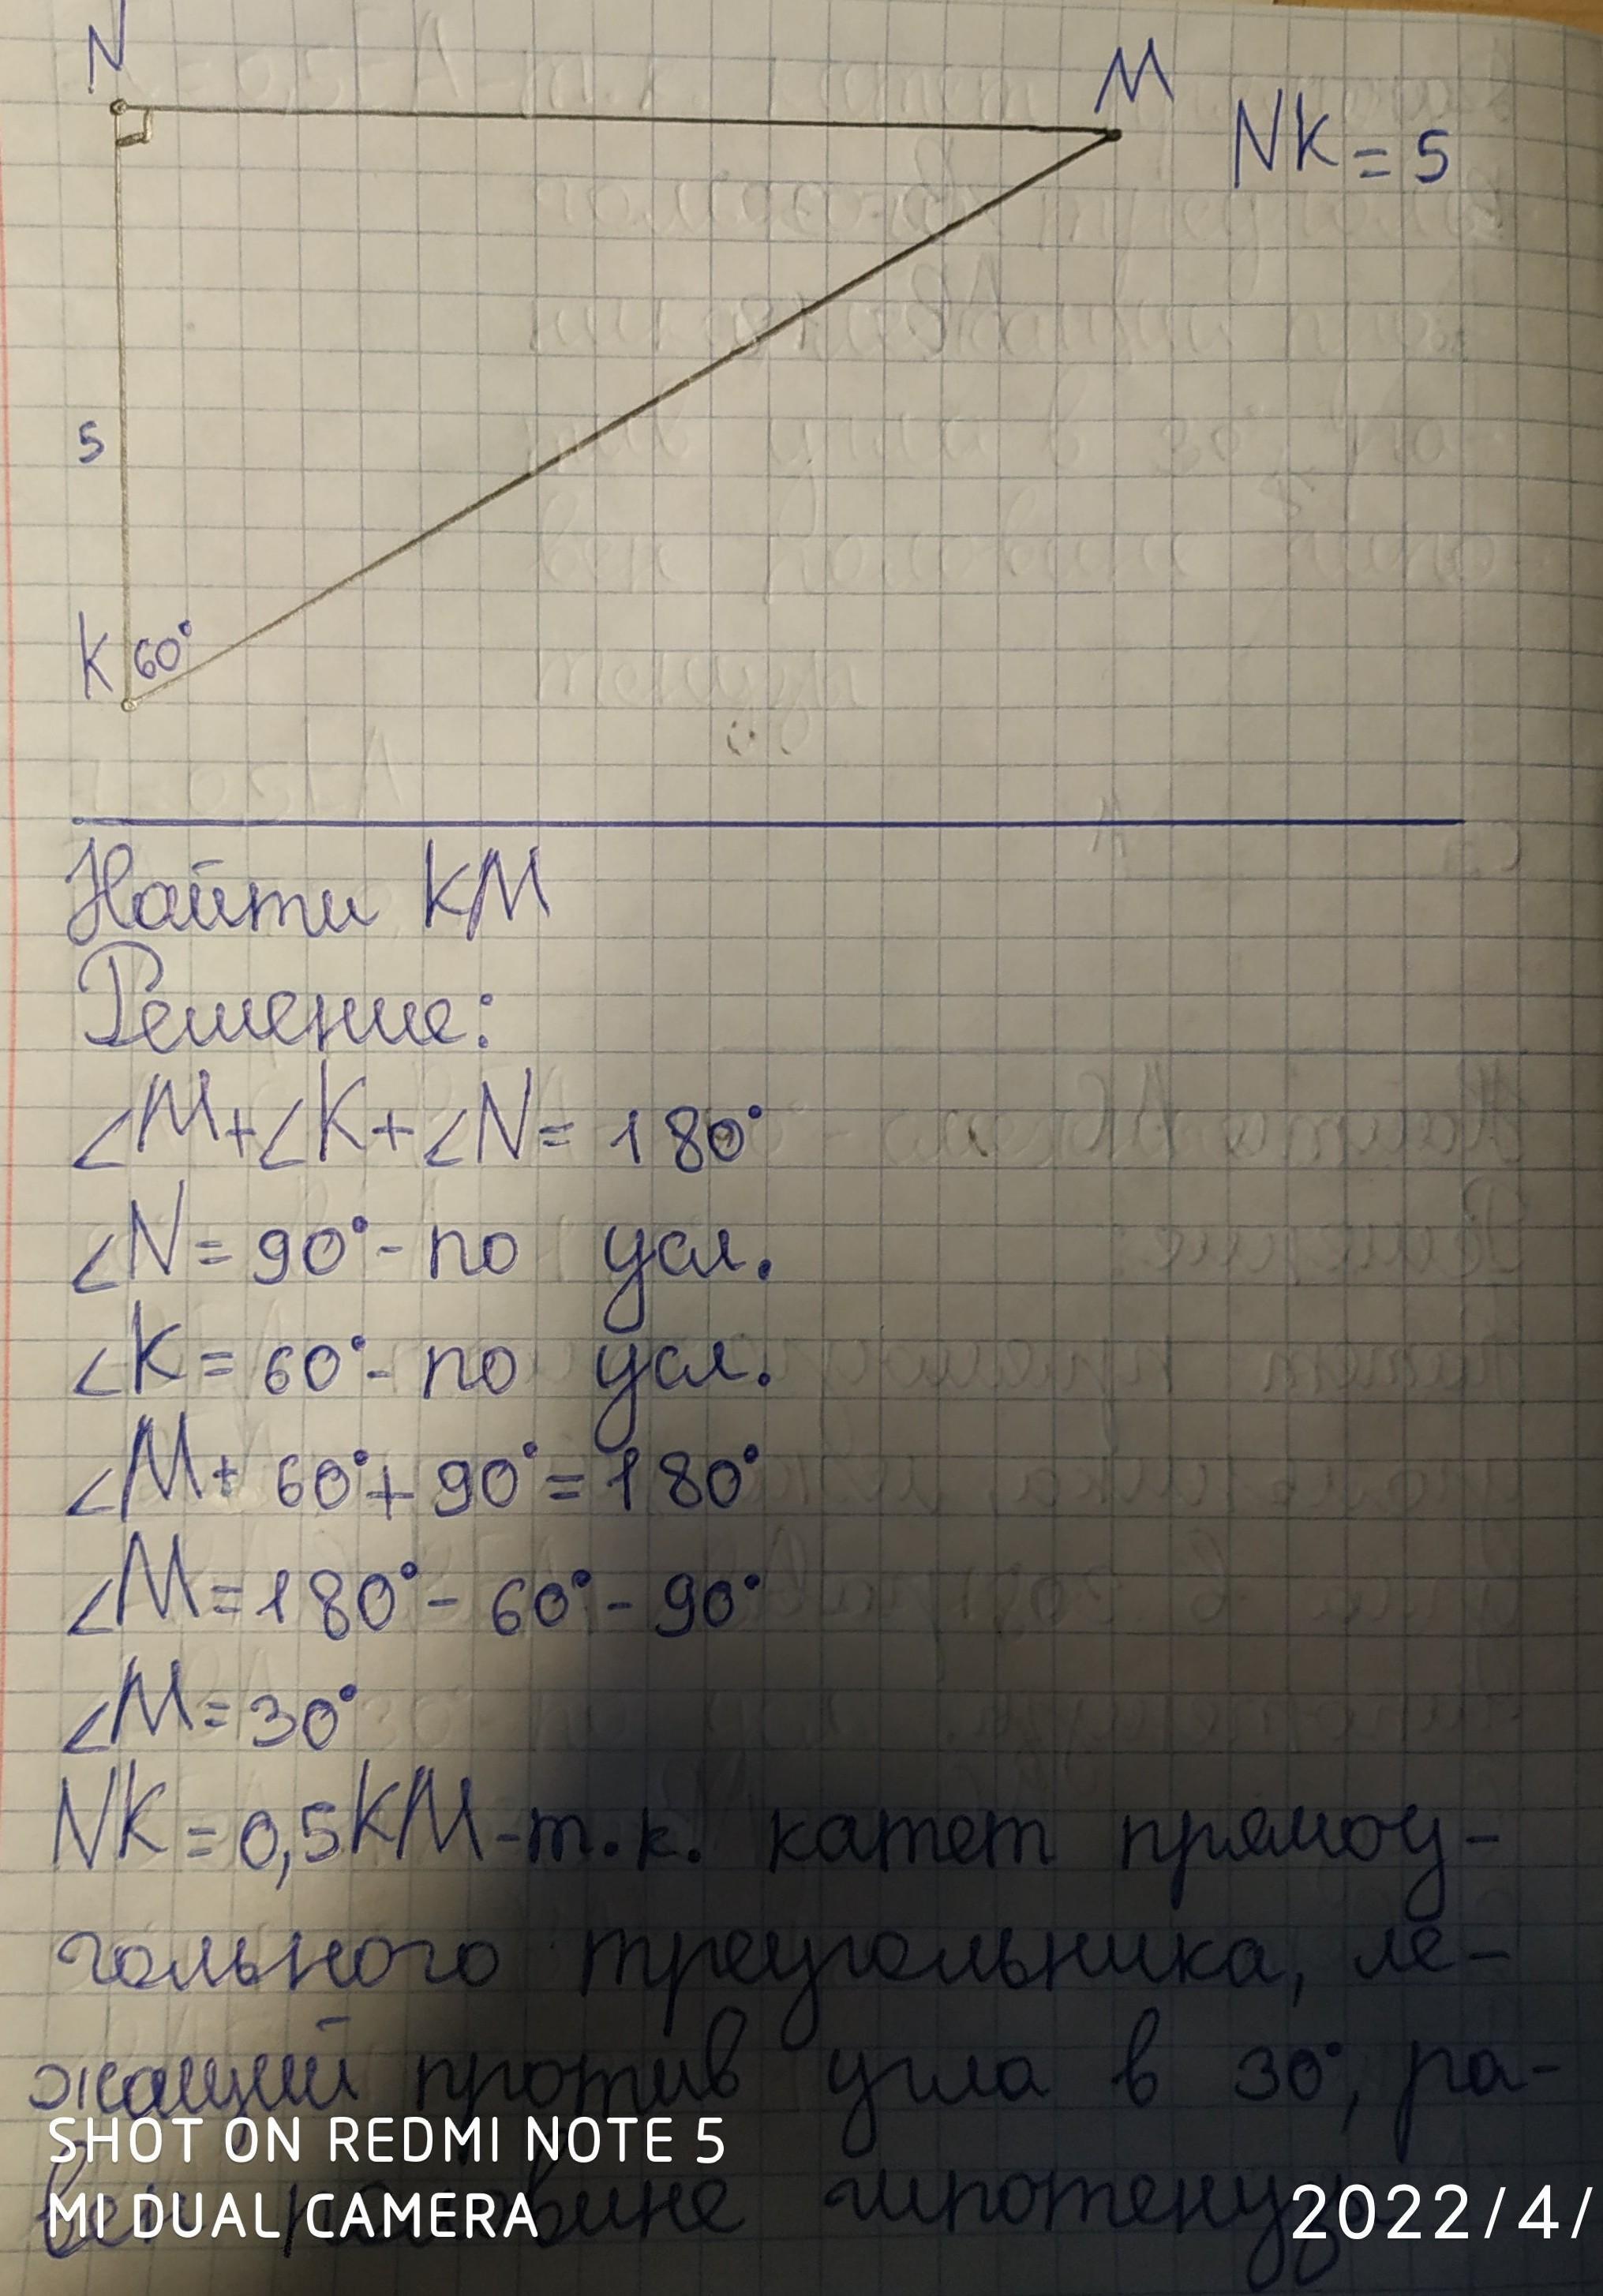 N
M
NK = 5
5
K 60°
Найти KM
Решение:
∠M+∠K+∠N= 180°
∠N= 90°- по усл.
∠K= 60°- по усл.
∠M+ 60°+90°=180°
∠M=180°- 60°- 90°
∠M=30°
NK=0,5KM-т.к. катет прямоу-
гольного треугольника, ле-
жащий против угла в 30°, ра-
вен половине гипотенуз
SHOT ON REDMI NOTE 5
MI DUAL CAMERA
2022/4/